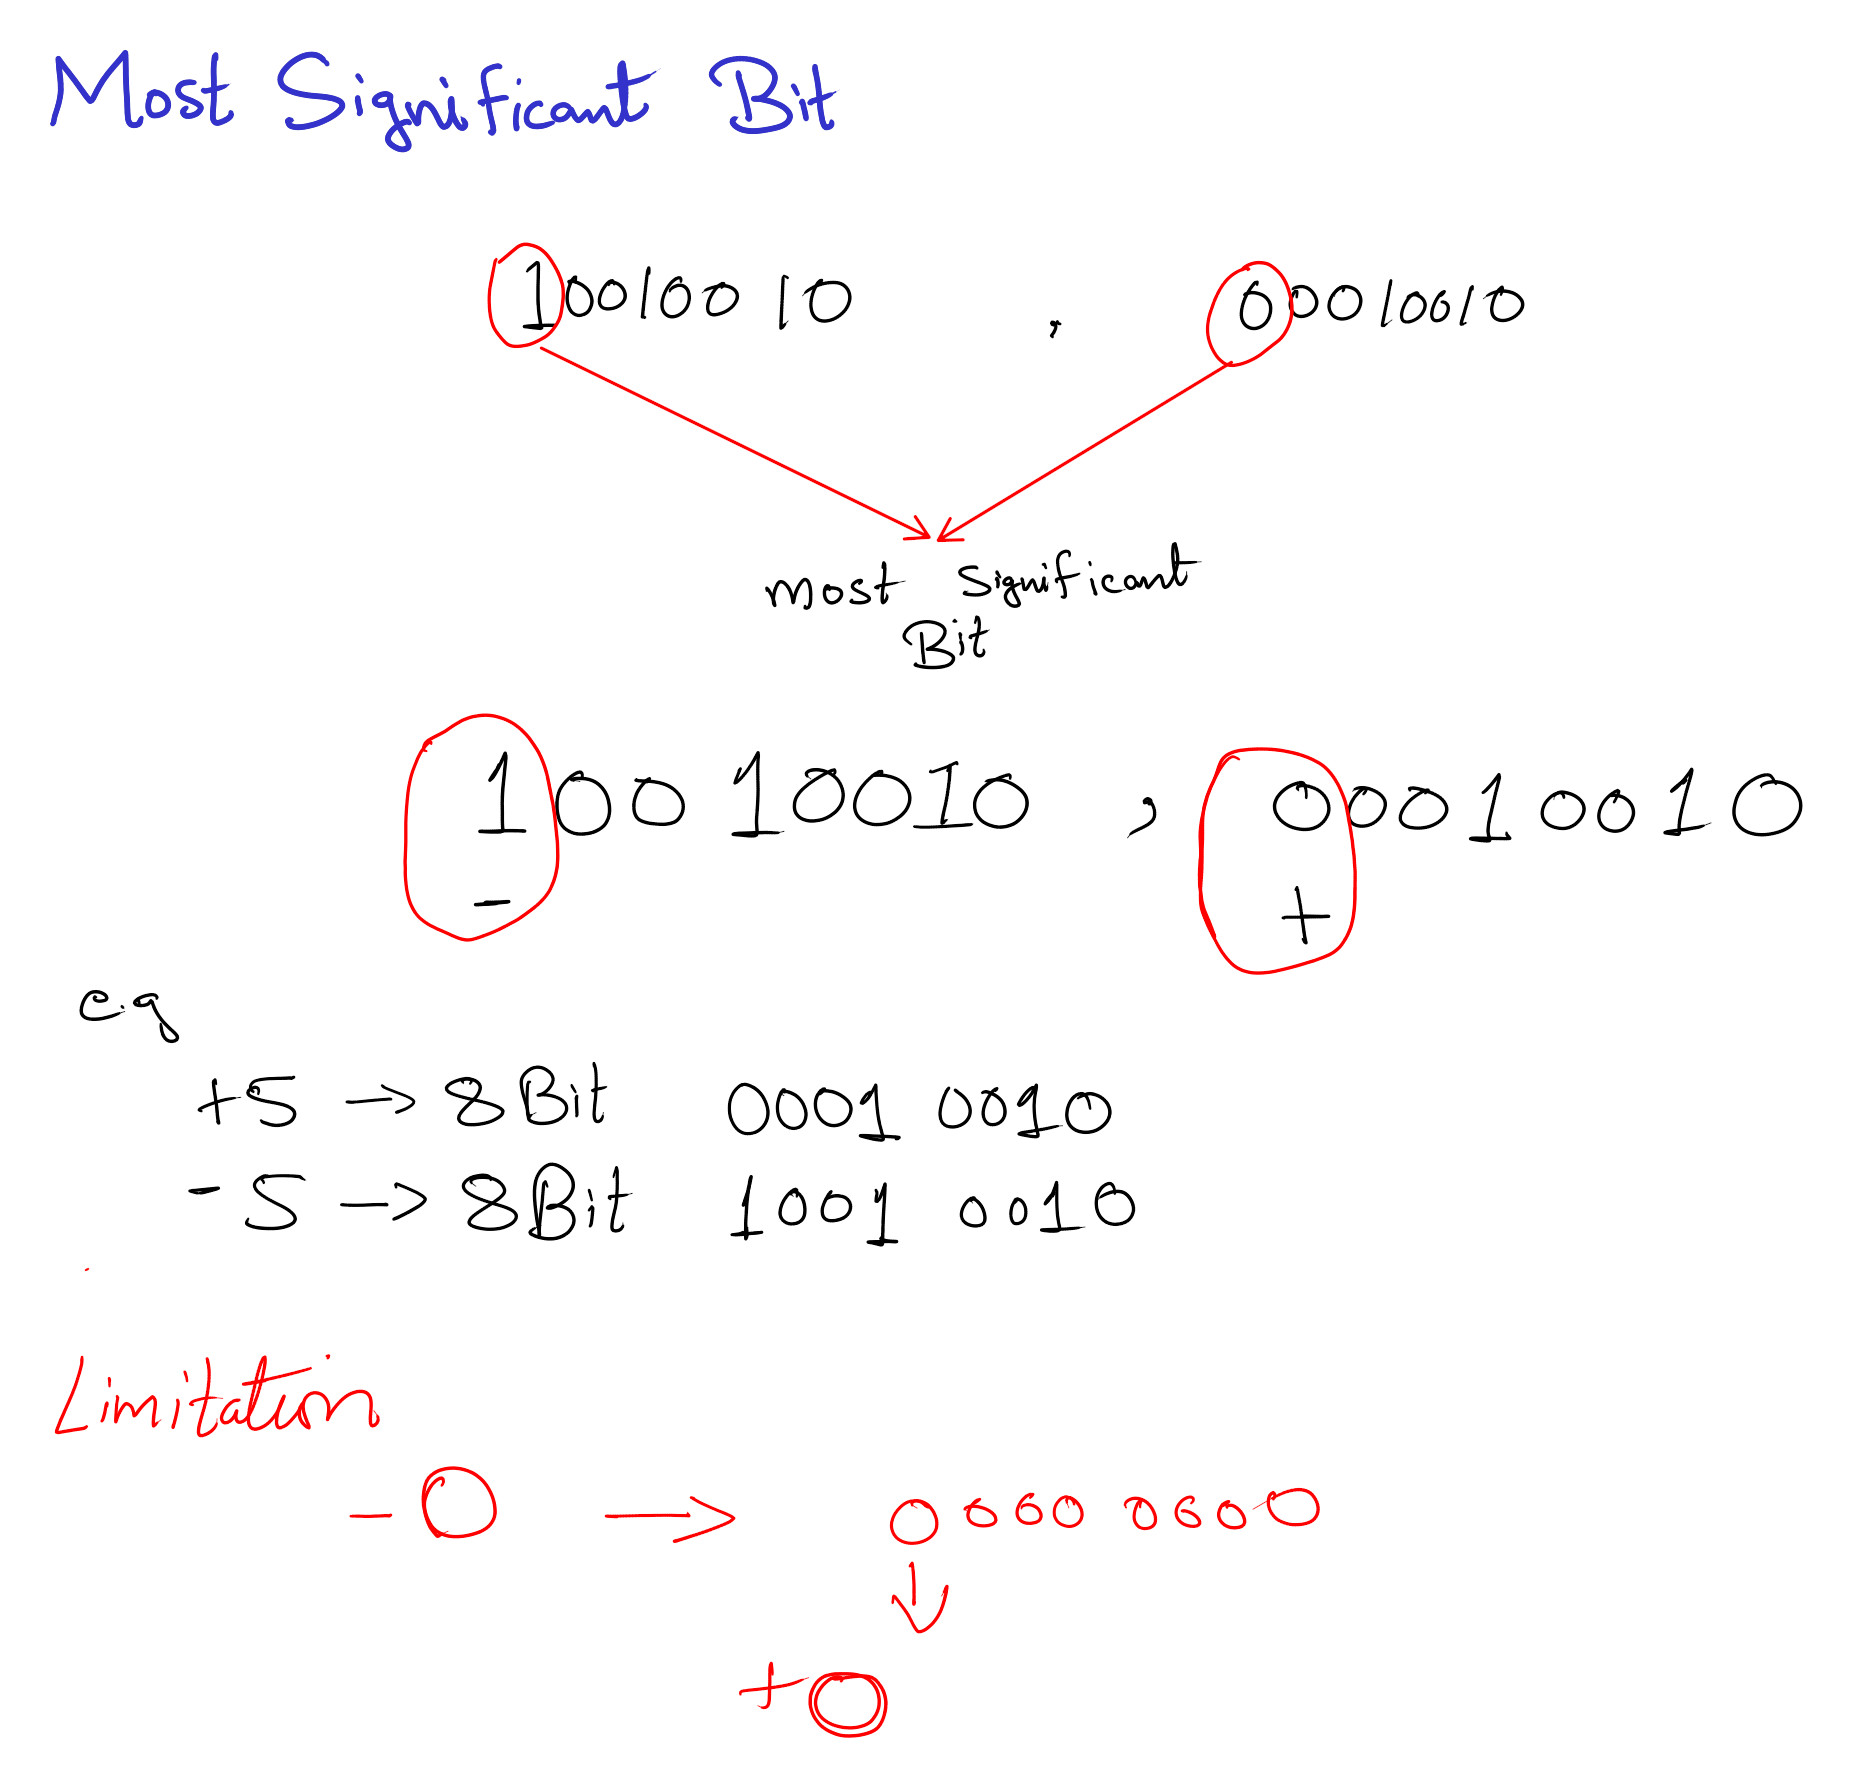 Most Significant Bit
10010010 , 00010010
most Significant
Bit
10010010 , 00010010
- +
e.g
+5 → 8Bit 0001 0010
-5 → 8Bit 1001 0010
Limitation
-0 → 0000 0000
↓
+0